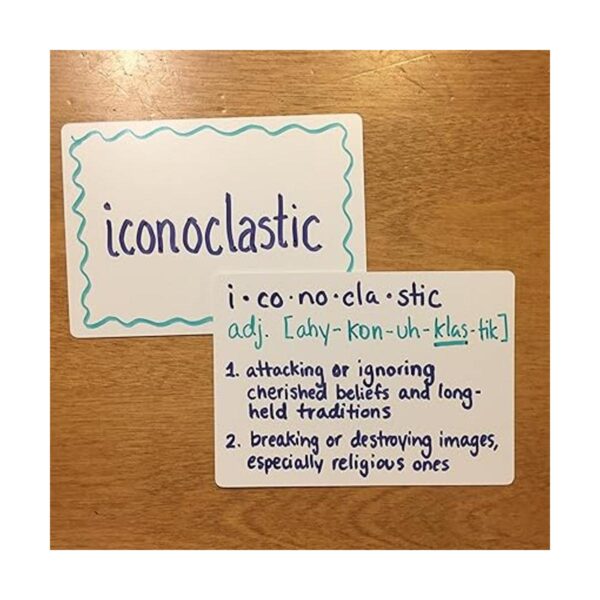 iconoclastic
i·co·no·cla·stic
adj. [ahy-kon-uh-klas-tik]
1. attacking or ignoring
cherished beliefs and long-
held traditions
2. breaking or destroying images,
especially religious ones